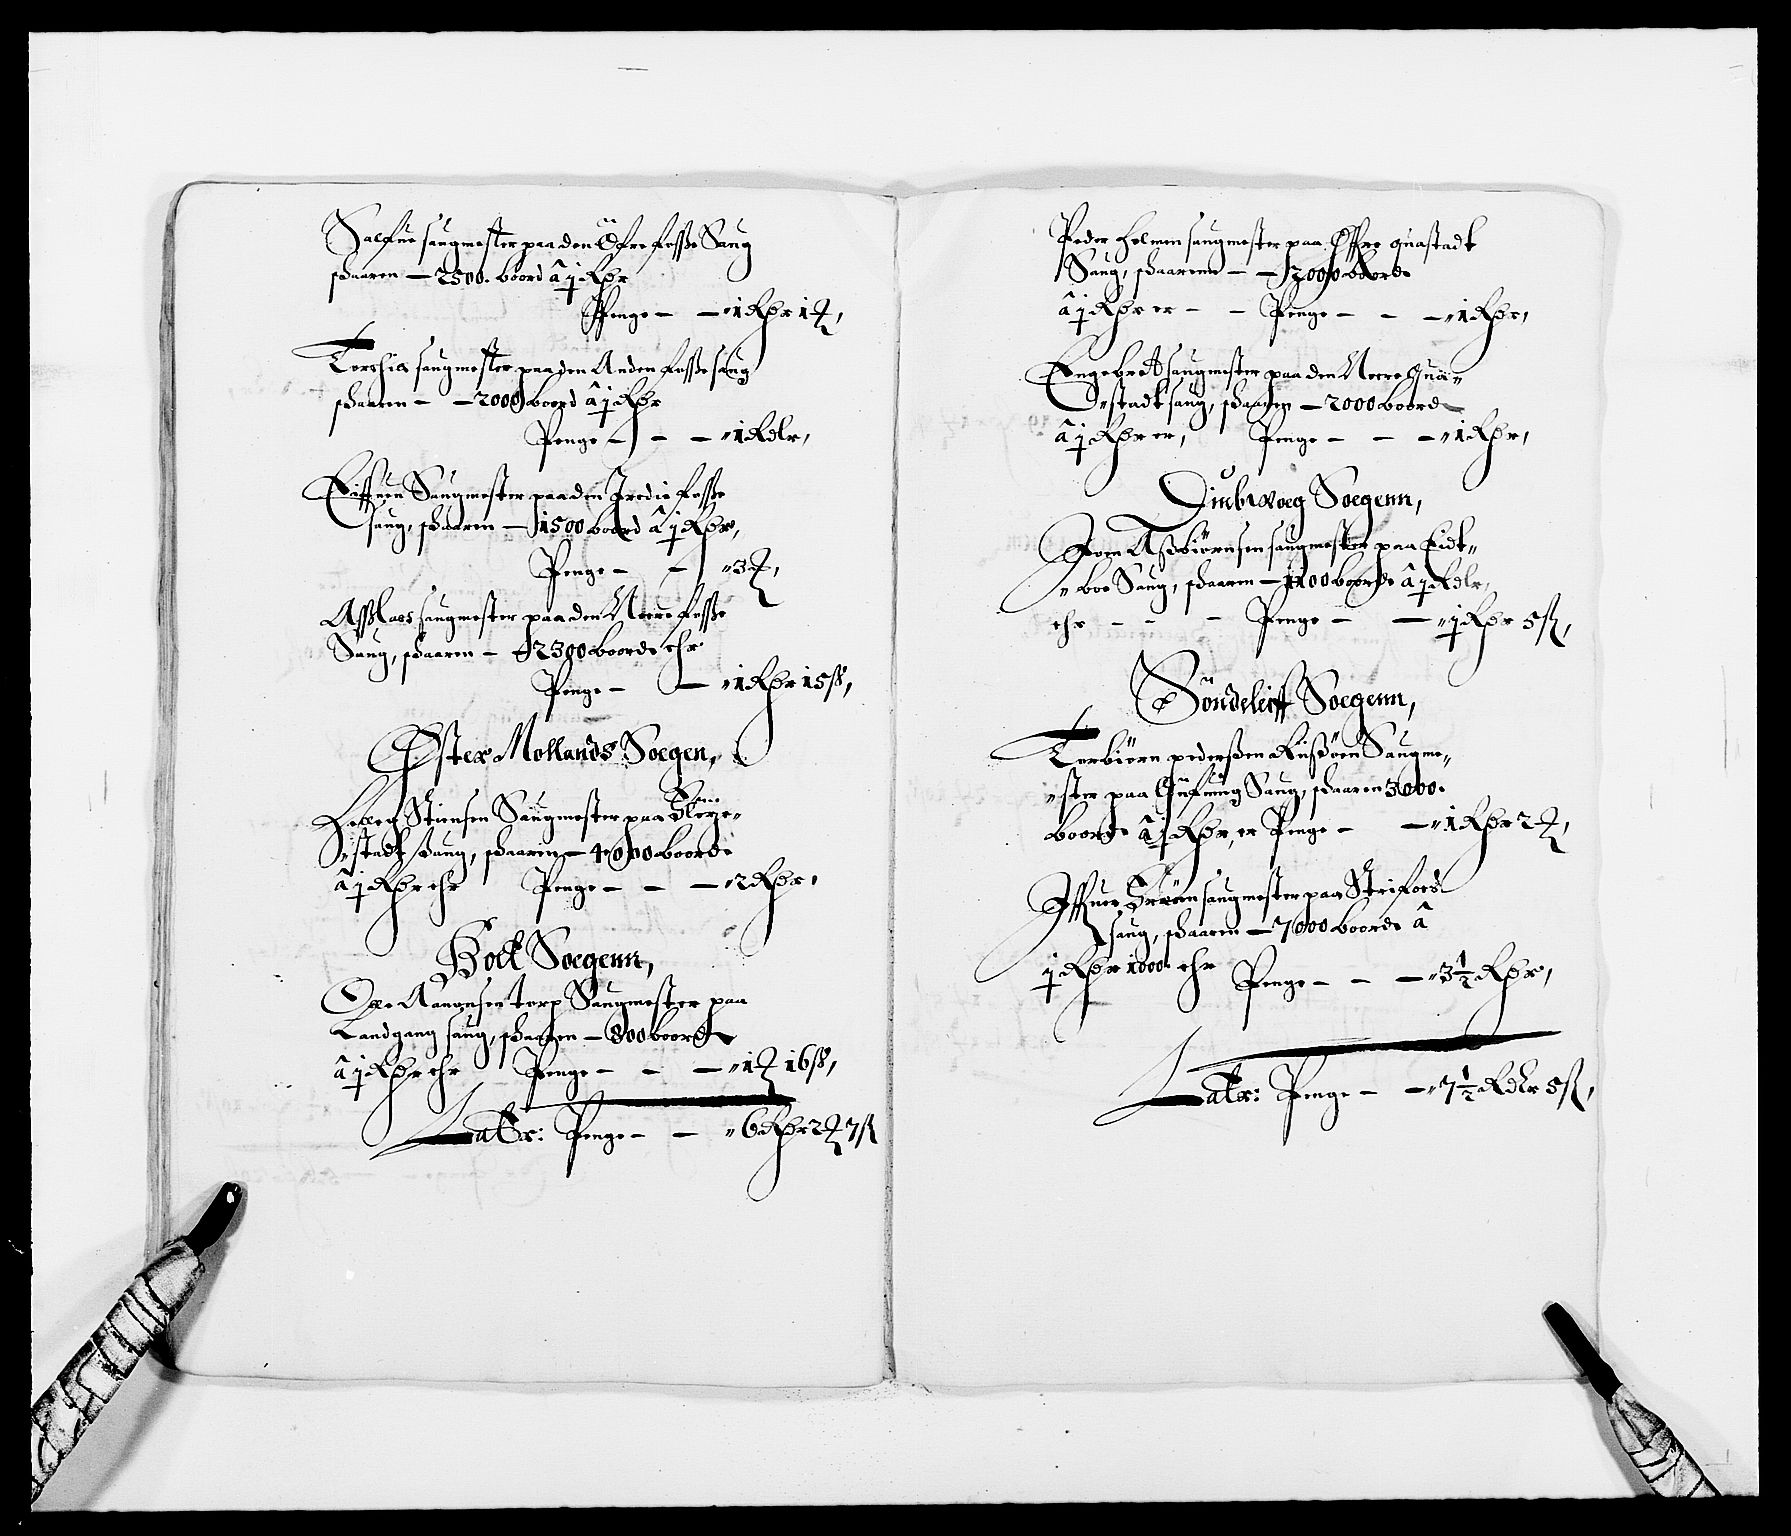 Salfue saugmester paa den Öfre fosse Saug
schaaren — 2500. boord â ½ Rdr
Penge — — 1 Rdr 1 ꝶ,
Torchil saugmester paa den Anden fosse saug
schaaren — — 2000 boord â ½ Rdr
Penge — — — 1 Rdlr,
Eiffuen Saugmester paa den Tredie fosse
saug, schaaren — 1500 boord â ½ Rdr,
Penge — — 3 ꝶ,
Assslaes saugmester paa den Neere fosse
Saug, schaaren — 2300 boorde ehr
Penge — — 1 Rdr 15 ß,
Øster Mollands Soegen,
Stiensen Saugmester paa
stadt Saug, schaaren — 4000 boorde
â ½ Rdr ehr Penge — — — 2 Rdr,
Holt Soegenn,
Ole Aanonsen torp Saugmester paa
Landgang saug, schaaren — 800 boorde
â ½ Rdr ehr Penge — — — 1 ꝶ 16 ß,
Latr: Penge — — 6 Rdr 2 ꝶ 7 ß
Peder Holmen saugmester paa Øffre quastadt
Saug, schaarene — — 2000 boorde
â ½ Rdr er — — Penge — — — 1 Rdr,
Engebret saugmester paa den Neere Qua-
stadt saug, schaaren — 2000 boorde
â ½ Rdr er, Penge — — — 1 Rdr,
Dimbwoeg Soegenn,
Joen Assbiørnsen saugmester paa Eidt-
boe Saug, schaaren — 1100 boorde â ½ Rdlr,
ehr — — — Penge — — ½ Rdr 5 ß,
Söndeleff Soegenn,
Torbiörn pedersen Riisöen Saugme-
ster paa Saug, schaaren 3000.
boorde â ½ Rdr, er Penge — — 1 Rdr 2 ꝶ,
Iffuer saugmester paa Strifoes
saug, schaaren — 7000 boorde â
½ Rdr 1000. ehr Penge — — — 3½ Rdr,
Latr: Penge — — 7½ Rdlr 5 ß,